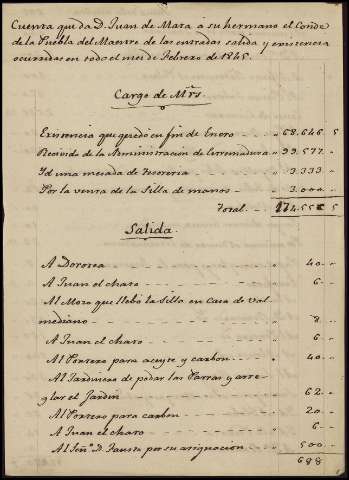 Cuenta que da D. Juan de Mata a su hermano el Conde
de la Puebla del Maestre de las entradas salida y existencia
ocurridas en todo el mes de Febrero de 1845.
Cargo de Mrs
Existencia que quedó en fin de Enero - - " 68.646 5
Recivido de la Administración de Estremadura " 99.577 "
Yd una mesada de tesoreria - - " 3.333 "
Por la venta de la Silla de manos - - " 3.000 "
Total - - 174.556 5
Salida.
A Dorotea - - " 40 "
A Juan el charo - - " 6 "
Al Mozo que llebó la Silla en Casa de Val
mediano - - " 8 "
A Juan el charo - - " 6 "
Al Portero para aceyte y carbon - - " 40 "
Al Jardinero de podar las Parras y arre
glar el Jardin - - " 62 "
Al Portero para carbon - - " 20 "
A Juan el charo - - " 6 "
Al Señor D. Fausto por su asignacion - - " 500 "
688